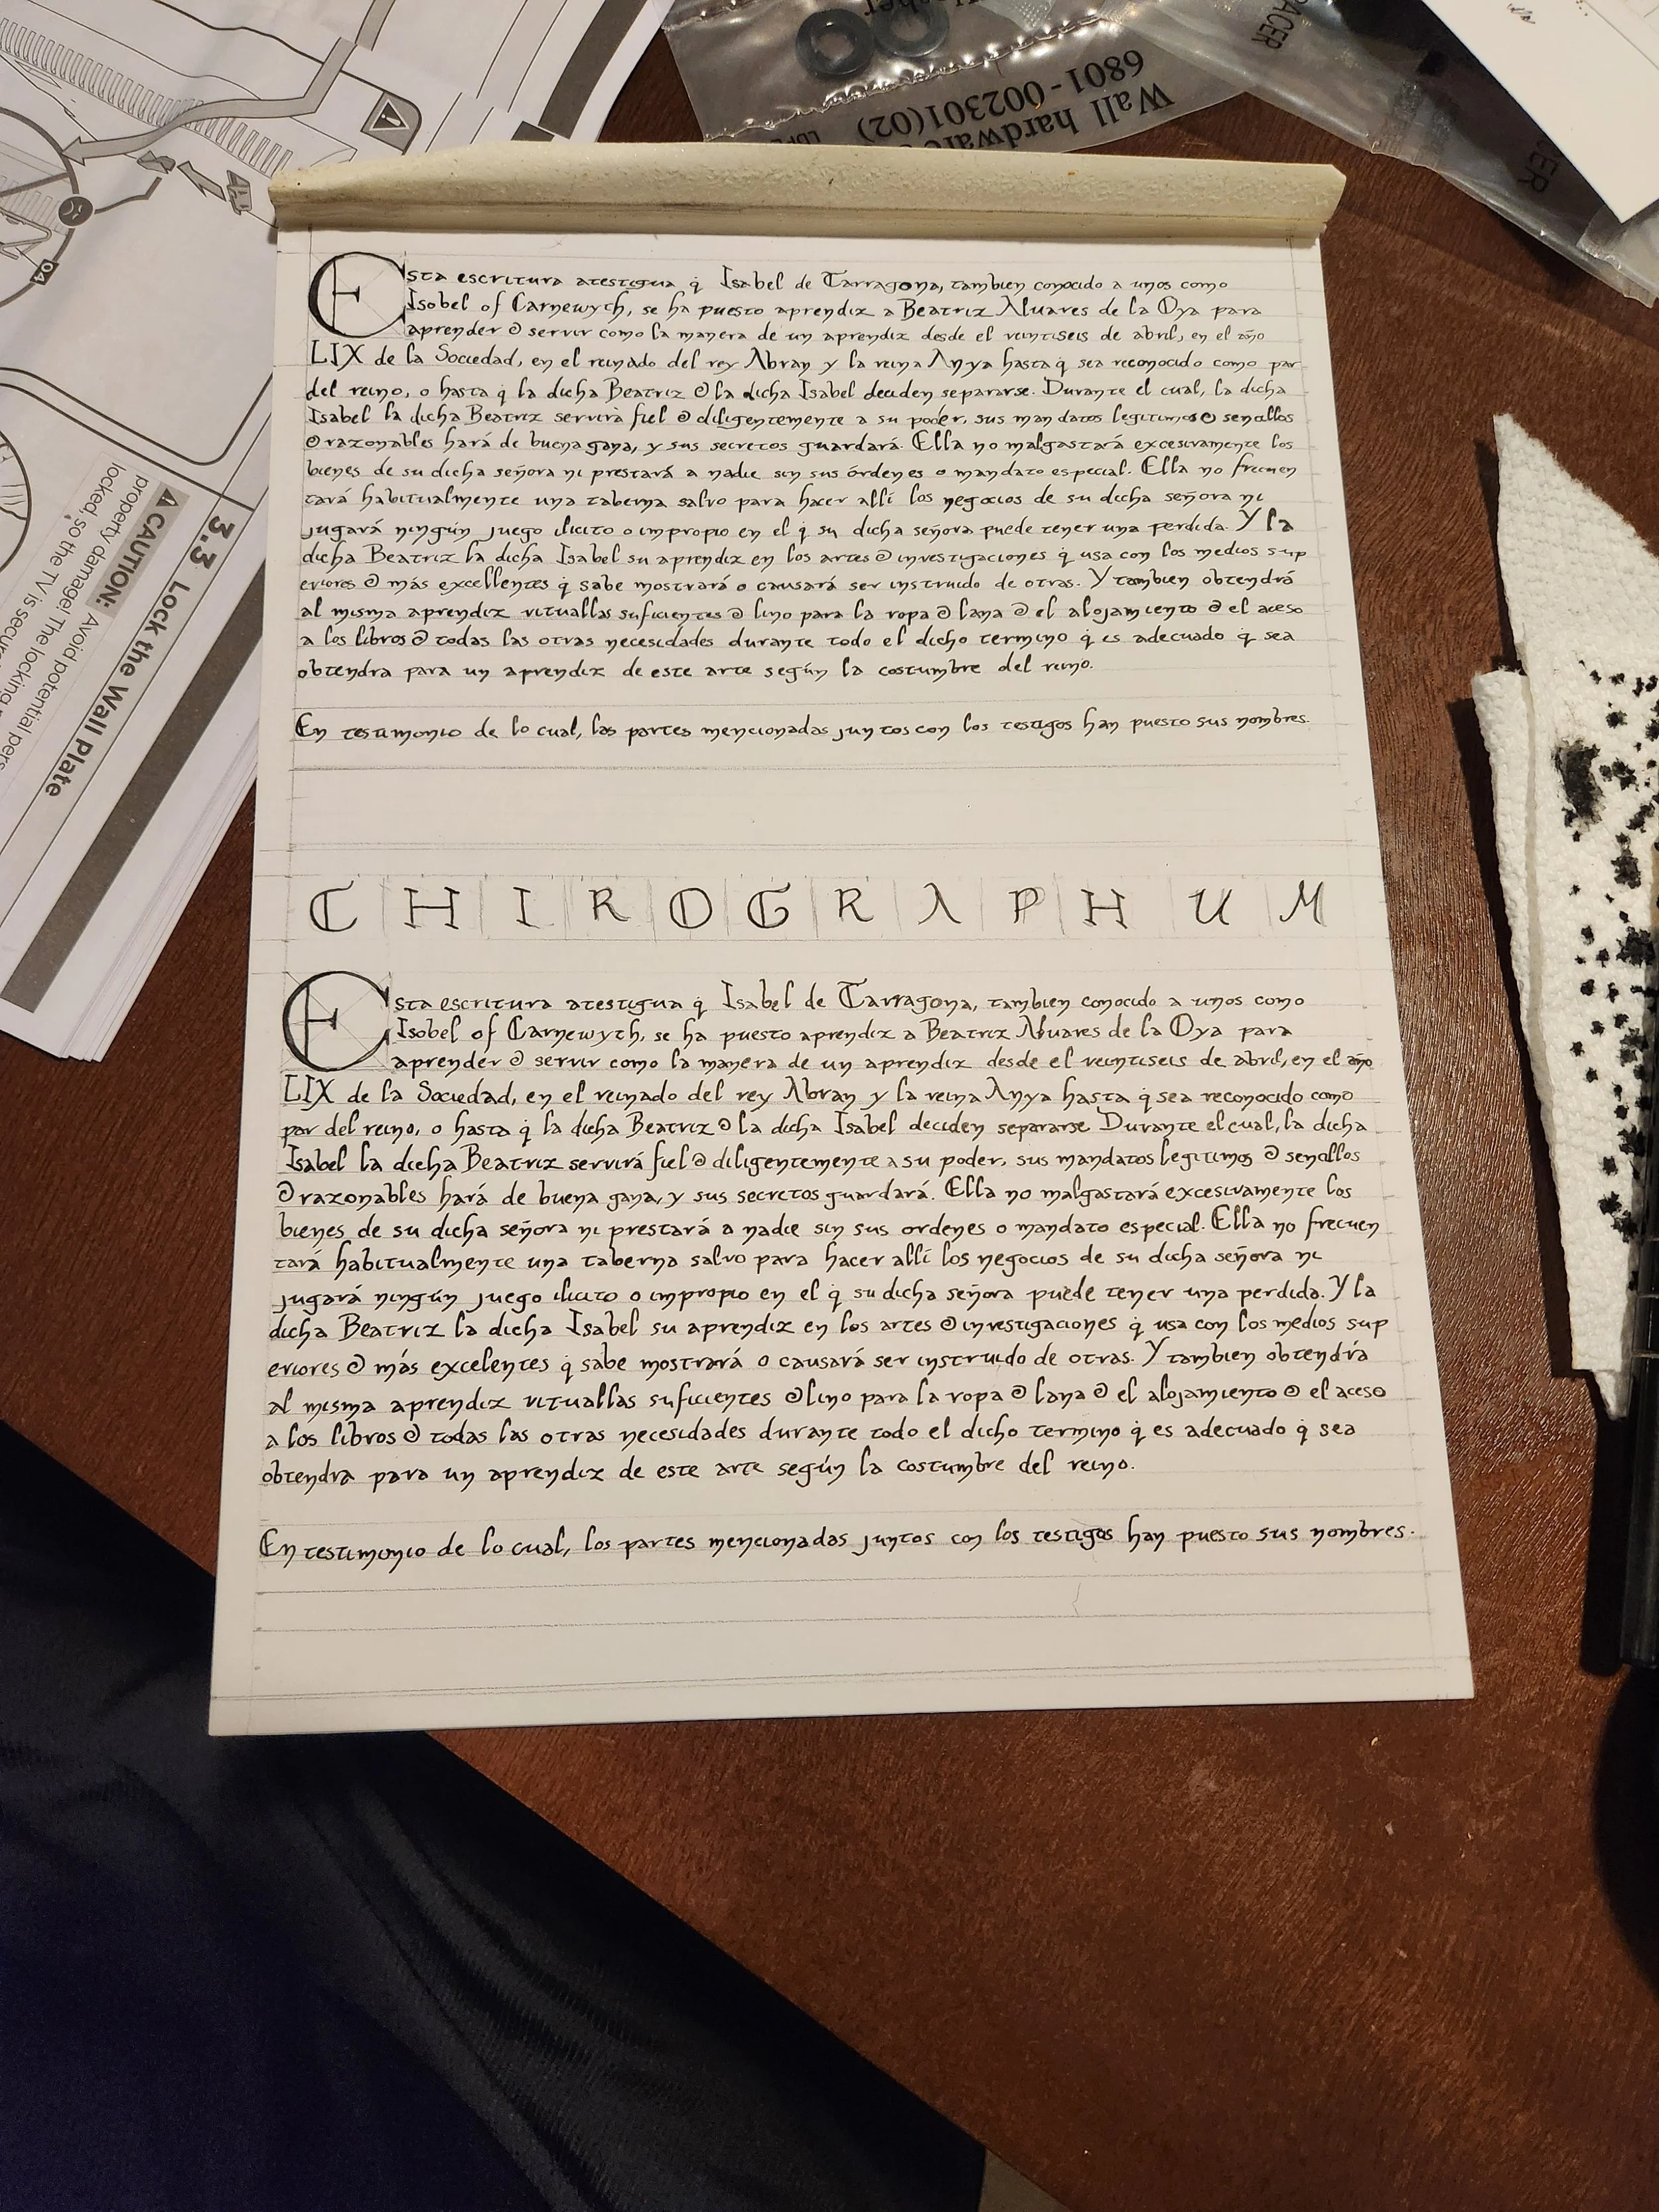 Wall hardware
6801-002301(02)
SPACER
04
3.3 Lock the Wall Plate
⚠ CAUTION: Avoid potential
property damage! The locking
locked, so the TV is secure
Esta escritura atestigua q̇ Isabel de Tarragona, tambien conocido a unos como
Isobel of Carnewyth, se ha puesto aprendix a Beatriz Alvares de la Oya para
aprender ⁊ servir como la manera de un aprendiz desde el veintiseis de abril, en el año
LIX de la Sociedad, en el reinado del rey Abran y la reina Anya hasta q̇ sea reconocido como par
del reino, o hasta q̇ la dicha Beatriz ⁊ la dicha Isabel deciden separarse. Durante el cual, la dicha
Isabel la dicha Beatriz servirà fiel ⁊ diligentemente a su poder, sus mandatos legitimos ⁊ sencillos
⁊ razonables hará de buena gana, y sus secretos guardará. Ella no malgastará excesivamente los
bienes de su dicha señora ni prestará a nadie sin sus órdenes o mandato especial. Ella no frecuen
tará habitualmente una taberna salvo para hacer allí los negocios de su dicha señora ni
jugará ningún juego ilicito o impropio en el q̇ su dicha señora puede tener una perdida. Y la
dicha Beatriz la dicha Isabel su aprendiz en los artes ⁊ investigaciones q̇ usa con los medios sup
eriores ⁊ más excellentes q̇ sabe mostrará o causará ser instruido de otras. Y tambien obtendrá
al misma aprendiz vituallas suficientes ⁊ lino para la ropa ⁊ lana ⁊ el alojamiento ⁊ el aceso
a los libros ⁊ todas las otras necesidades durante todo el dicho termino q̇ es adecuado q̇ sea
obtendra para un aprendiz de este arte según la costumbre del reino.
En testimonio de lo cual, las partes mencionadas juntos con los testigos han puesto sus nombres.
CHIROGRAPHUM
Esta escritura atestigua q̇ Isabel de Tarragona, tambien conocido a unos como
Isobel of Carnewyth, se ha puesto aprendix a Beatriz Alvares de la Oya para
aprender ⁊ servir como la manera de un aprendiz desde el veintiseis de abril, en el año
LIX de la Sociedad, en el reinado del rey Abran y la reina Anya hasta q̇ sea reconocido como
par del reino, o hasta q̇ la dicha Beatriz ⁊ la dicha Isabel deciden separarse Durante el cual, la dicha
Isabel la dicha Beatriz servirá fiel ⁊ diligentemente a su poder, sus mandatos legitimos ⁊ sencillos
⁊ razonables hará de buena gana, y sus secretos guardará. Ella no malgastará excesivamente los
bienes de su dicha señora ni prestará a nadie sin sus ordenes o mandato especial. Ella no frecuen
tará habitualmente una taberna salvo para hacer allí los negocios de su dicha señora ni
jugará ningún juego ilicito o impropio en el q̇ su dicha señora puede tener una perdida. Y la
dicha Beatriz la dicha Isabel su aprendiz en los artes ⁊ investigaciones q̇ usa con los medios sup
eriores ⁊ más excelentes q̇ sabe mostrará o causará ser instruido de otras. Y tambien obtendrá
al misma aprendiz vituallas suficientes ⁊ lino para la ropa ⁊ lana ⁊ el alojamiento ⁊ el aceso
a los libros ⁊ todas las otras necesidades durante todo el dicho termino q̇ es adecuado q̇ sea
obtendra para un aprendiz de este arte según la costumbre del reino.
En testimonio de lo cual, los partes mencionadas juntos con los testigos han puesto sus nombres.